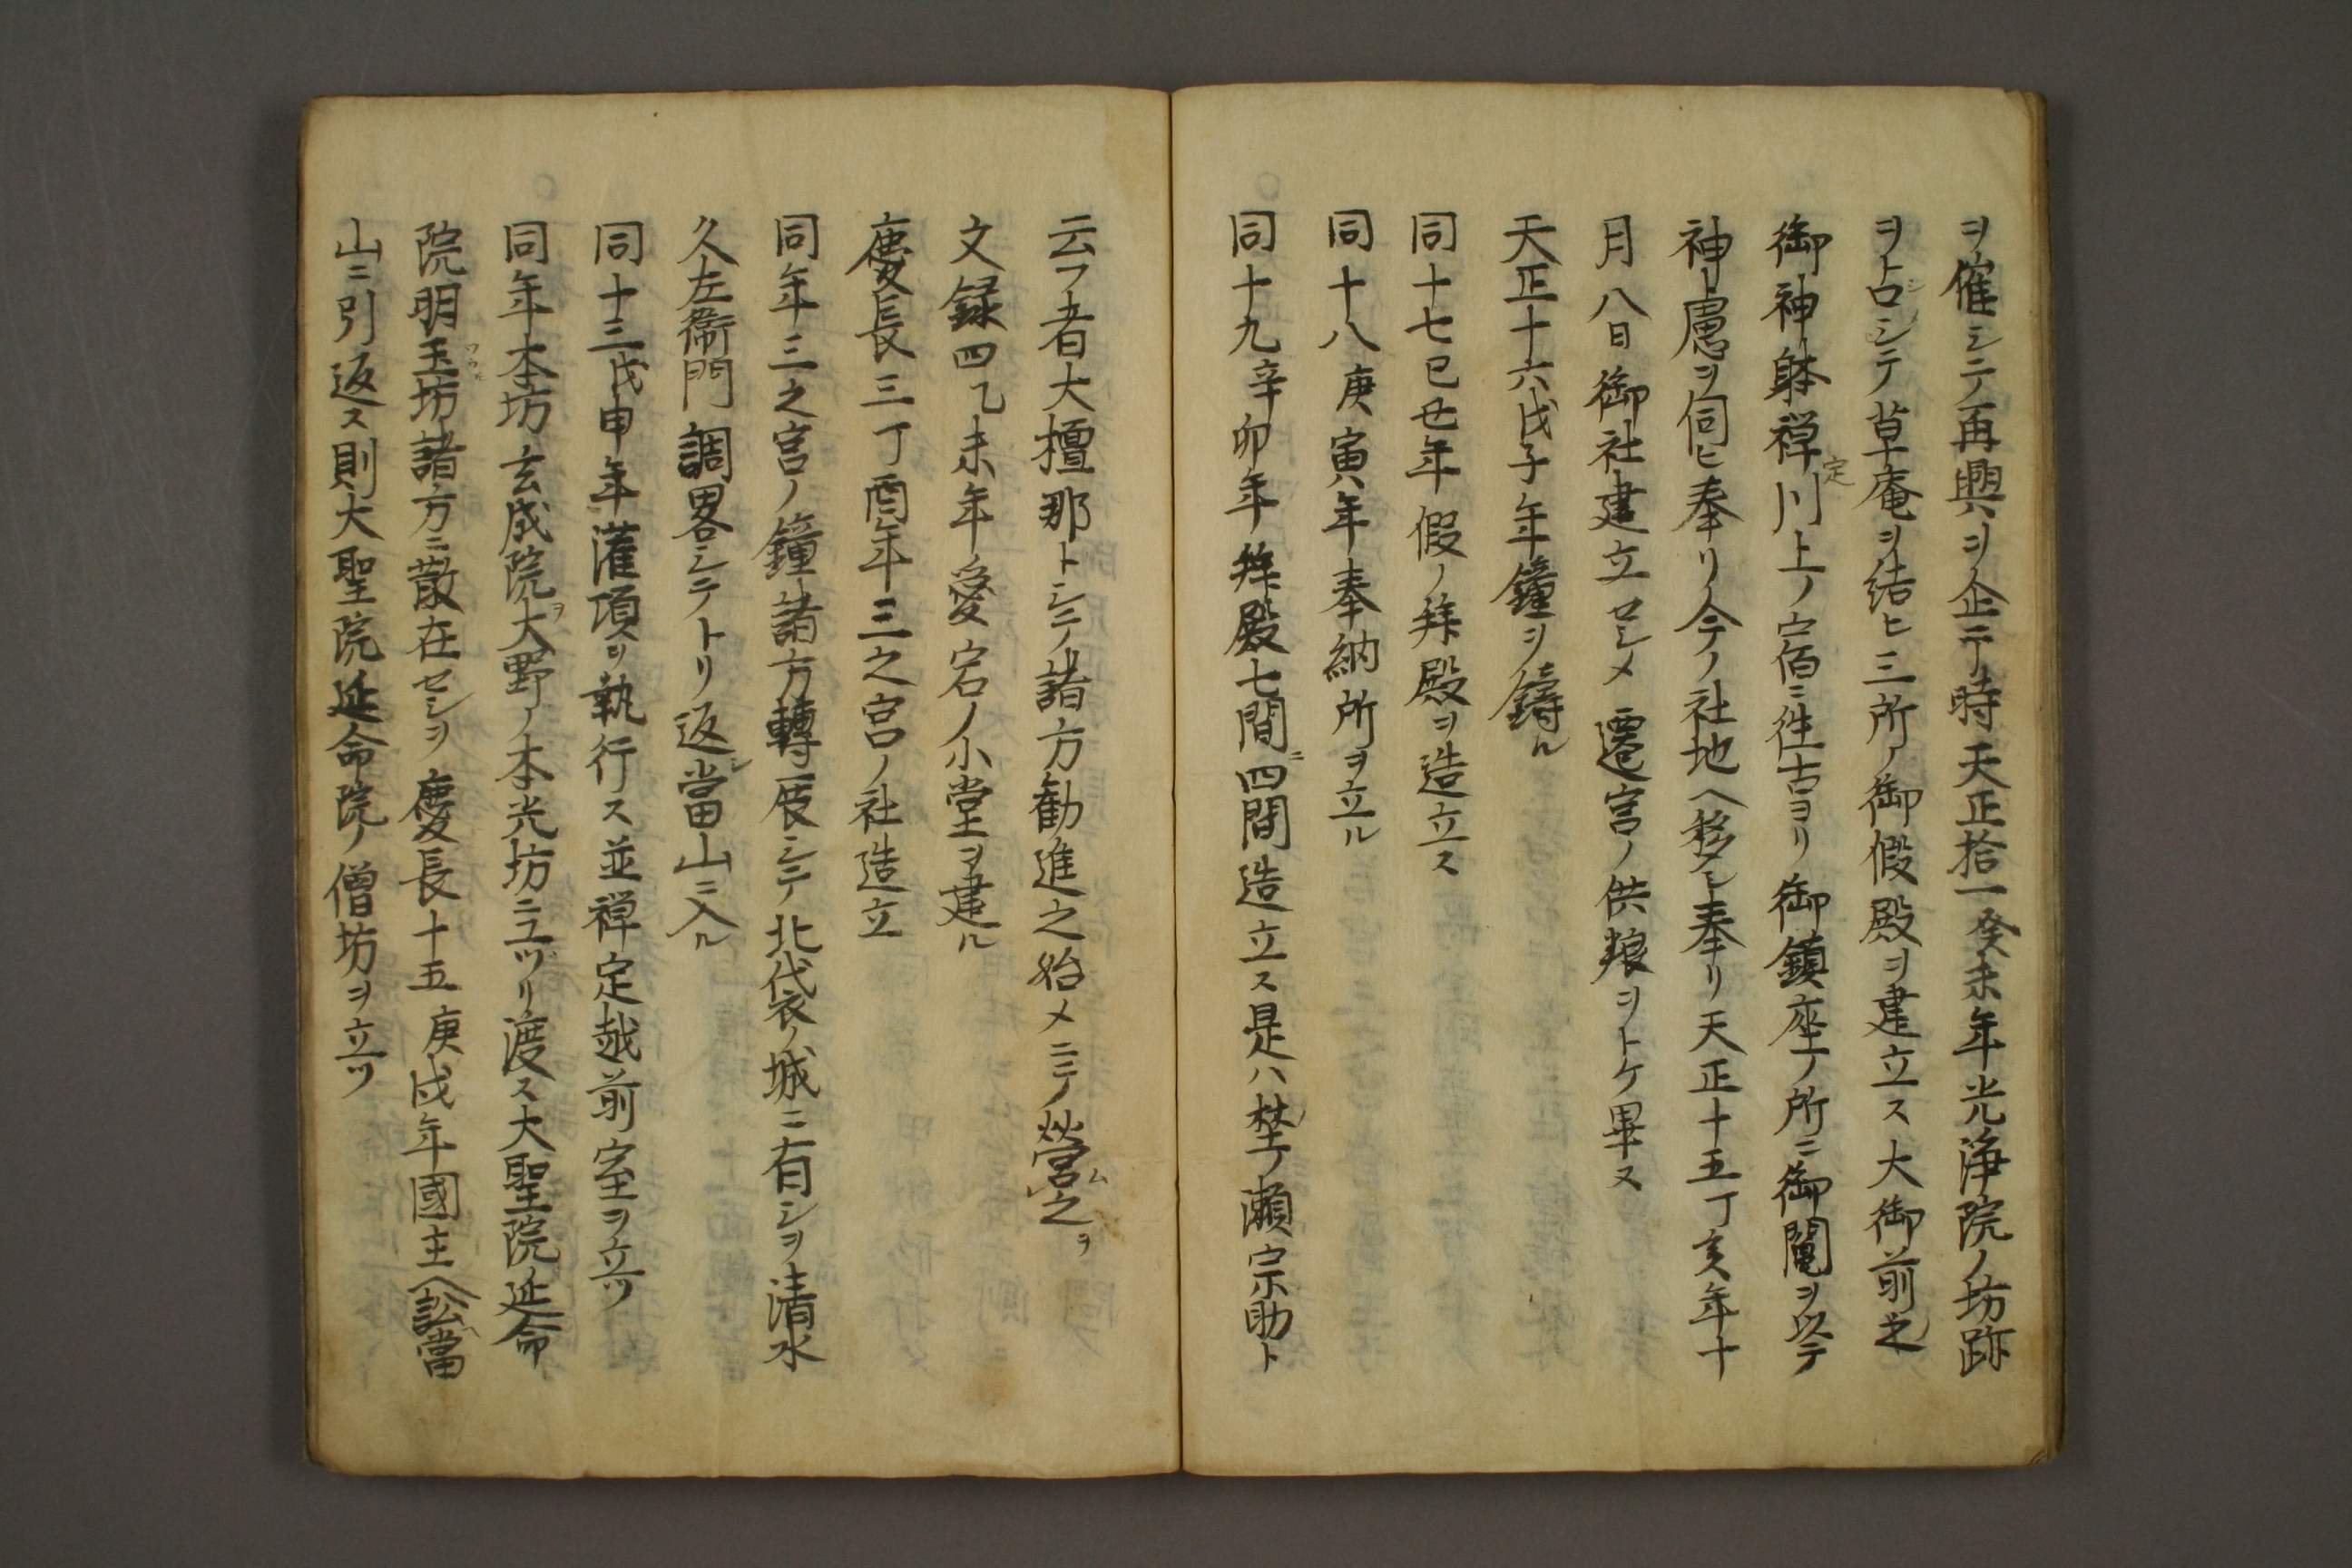 ヲ催シテ再興ヲ企テ時天正拾一癸未年光淨院ノ坊跡
ヲ占シテ草庵ヲ結ヒ三所ノ御假殿ヲ建立ス大御前之
御神躰禅定川上ノ宿ニ徃古ヨリ御鎮座ノ所ニ御鬮ヲ以テ
神慮ヲ伺ヒ奉リ今ノ社地ヘ移シ奉リ天正十五丁亥年十
月八日御社建立セシメ遷宮ノ供粮ヲトケ畢ヌ
天正十六戊子年鐘ヲ鑄ル
同十七已丑年假ノ拜殿ヲ造立ス
同十八庚寅年奉納所ヲ立ル
同十九辛卯年拜殿七間ニ四間造立ス是ハ埜ノ瀬宗助ト
云フ者大檀那トシテ諸方勧進之始メニテ營ム之ヲ
文録四乙未年愛宕ノ小堂ヲ建ル
慶長三丁酉年三之宮ノ社造立
同年三之宮ノ鐘諸方轉展シテ北袋ノ城ニ有シヲ清水
久左衞門調畧シテトリ返シ當山ニ入ル
同十三戊申年灌頂ヲ執行ス並禅定越前室ヲ立ツ
同年本坊玄成院ヲ大野ノ本光坊ニユツリ渡ス大聖院延命
院明王坊諸方ニ散在セシヲ慶長十五庚戌年國主ヘ訟當
山ニ引返ス則大聖院延命院ノ僧坊ヲ立ツ